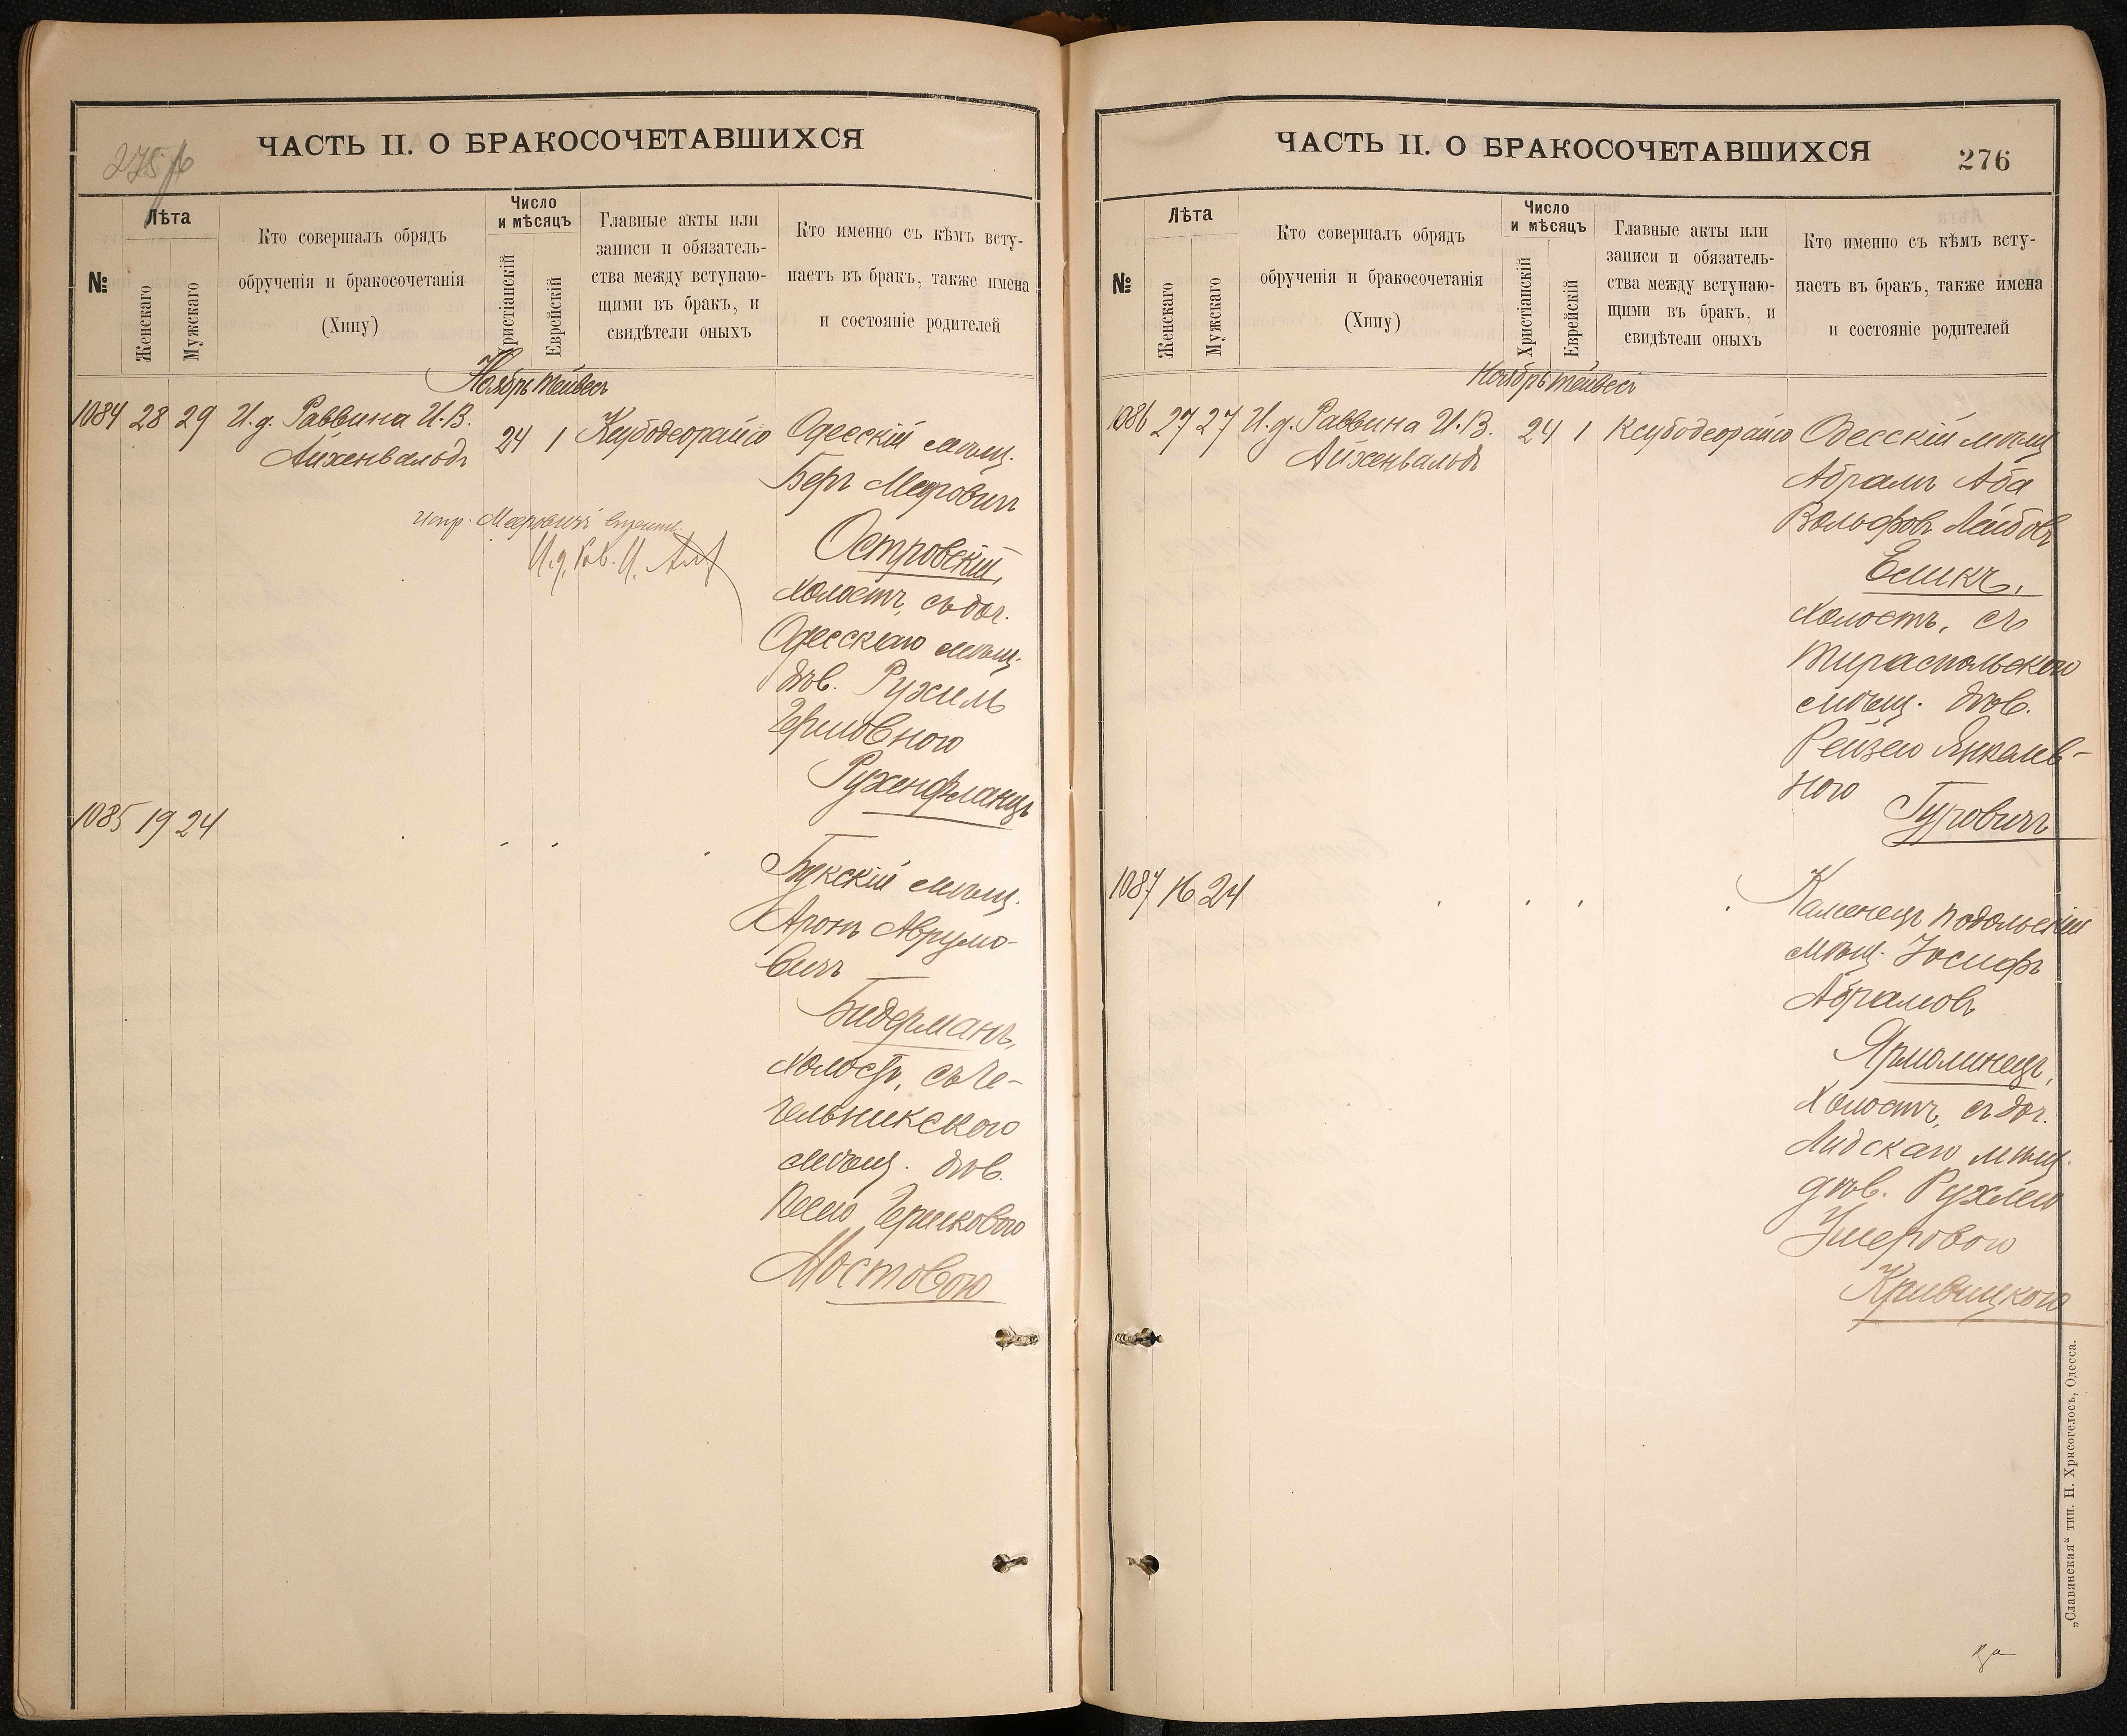 275 об
ЧАСТЬ II. О БРАКОСОЧЕТАВШИХСЯ
№
Лѣта
Женскаго
Мужскаго
Кто совершалъ обрядъ
обрученія и бракосочетанія
(Хипу)
Число
и мѣсяцъ
Христіанскій
Еврейскій
Главные акты или
записи и обязатель-
ства между вступаю-
щими въ бракъ, и
свидѣтели оныхъ
Кто именно съ кѣмъ всту-
паетъ въ бракъ, также имена
и состояніе родителей
Ноябрь Тейвесъ
1084 28 29 И.д. Раввина И.В.
Айхенвальдъ
24 1 Ксубодеорайсо
Одесскій мѣщ.
Беръ Мееровичъ
Островскій,
холостъ, съ доч.
Одесскаго мѣщ.
дѣв. Рухель
Гершовною
Рухенфланцъ
испр. Меерович
И.д. Рав. И.
1085 19 24
Букскій мѣщ.
Аронъ Аврумо-
вичъ
Бидерманъ,
холостъ, съ Че-
чельникского
мѣщ. дѣв.
Песею Гершковою
Мостовою
ЧАСТЬ II. О БРАКОСОЧЕТАВШИХСЯ
276
№
Лѣта
Женскаго
Мужскаго
Кто совершалъ обрядъ
обрученія и бракосочетанія
(Хипу)
Число
и мѣсяцъ
Христіанскій
Еврейскій
Главные акты или
записи и обязатель-
ства между вступаю-
щими въ бракъ, и
свидѣтели оныхъ
Кто именно съ кѣмъ всту-
паетъ въ бракъ, также имена
и состояніе родителей
Ноябрь Тейвесъ
1086 27 27 И.д. Раввина И.В.
Айхенвальдъ
24 1 Ксубодеорайсо
Одесскій мѣщ.
Абрамъ Аба
Вольфовъ Лейбовъ
Есикъ,
холостъ, съ
Тираспольскою
мѣщ. дѣв.
Рейзею Янкелев-
ною
Гуровичъ
1087 16 24
Каменецъ Подольскій
мѣщ. Іосифъ
Абрамовъ
Ярмолинецъ,
холостъ, съ доч.
Лидскаго мѣщ.
дѣв. Рухлею
Умеровою
Кривицкою
„Славянская“ тип. Н. Хрисогелосъ, Одесса.